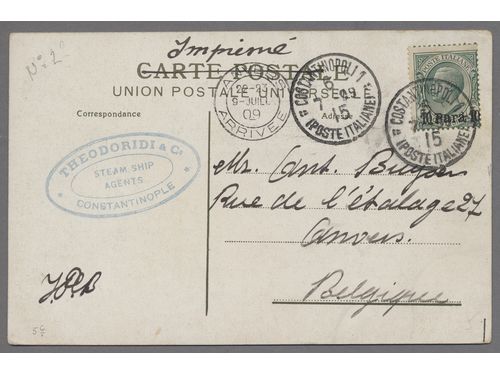 N° 2
Imprimé
CARTE POSTALE
UNION POSTALE UNIVERSELLE
Correspondance
Adresse
9-JUIL
09
ARRIVÉE
COSTANTINOPOLI 1
6
7 09
15
(POSTE ITALIANE)
POSTE ITALIANE
COSTANTINOPOLI
15
(POSTE ITALIANE)
10 Para 10
THEODORIDI & Co
STEAM SHIP
AGENTS
CONSTANTINOPLE
Mr. Ant.
Rue de l'étalage 27
Anvers.
Belgique